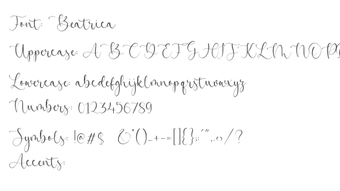 Font: Beatrica
Uppercase: A B C D E F G H I J K L M N O P
Lowercase: abcdefghijklmnopqrstuvwxyz
Numbers: 0123456789
Symbols: !@#$ &*()_+-=[]{};:'",.<>/?
Accents: